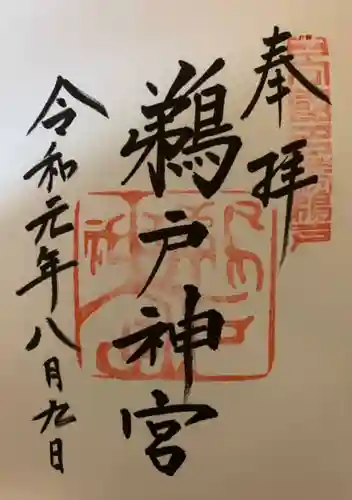 奉拝
鵜戸神宮
令和元年八月九日